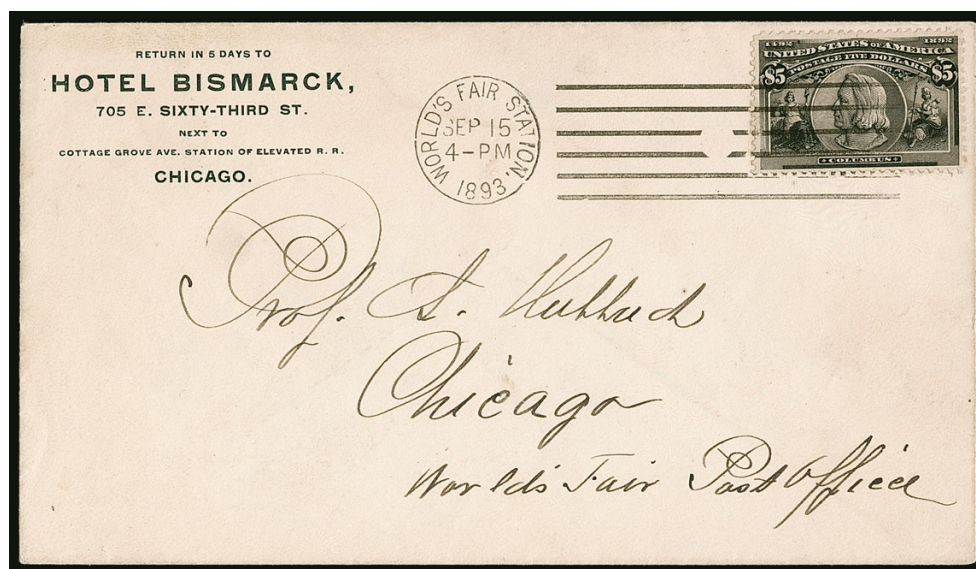 RETURN IN 5 DAYS TO
HOTEL BISMARCK,
705 E. SIXTY-THIRD ST.
NEXT TO
COTTAGE GROVE AVE. STATION OF ELEVATED R. R.
CHICAGO.
WORLD'S FAIR STATION.
SEP 15
4-PM
1893.
1492 1892
UNITED STATES OF AMERICA
POSTAGE FIVE DOLLARS
$5 $5
COLUMBUS
Prof.
Chicago
World's Fair Post Office